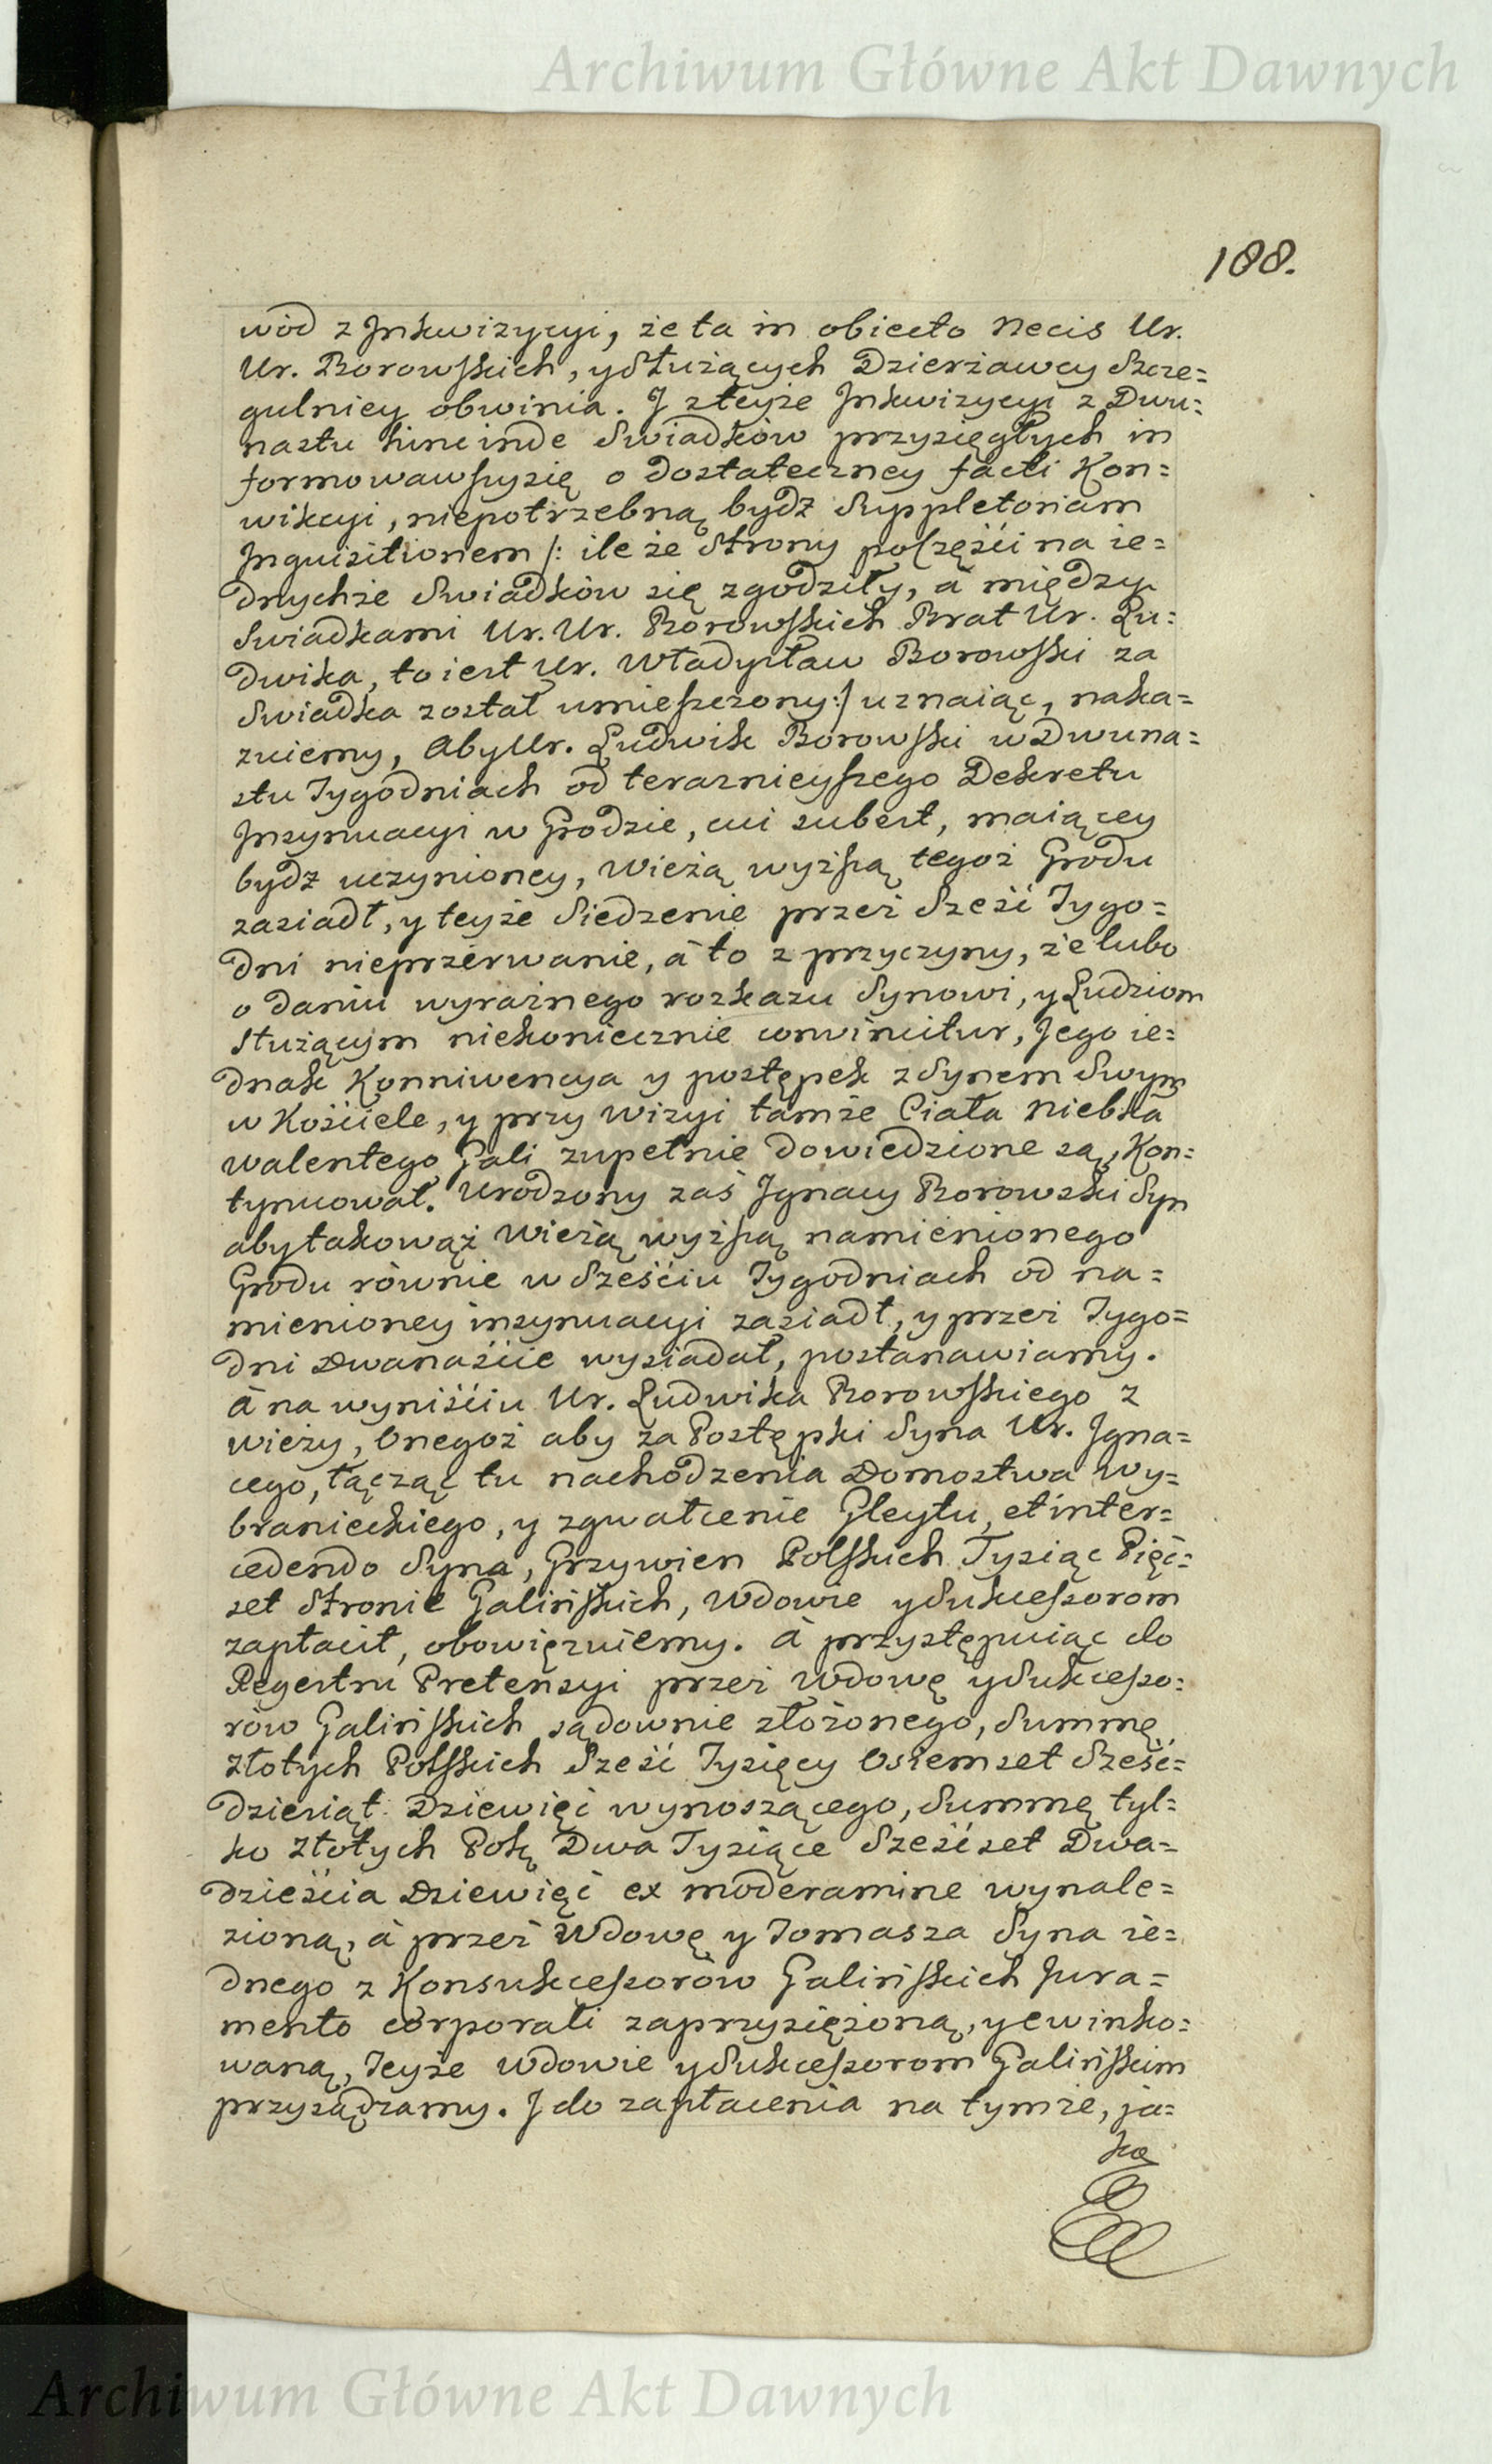 Archiwum Główne Akt Dawnych
188.
wód z Inkwizycyi, że ta in obiecto Necis Ur.
Ur. Borowskich, y Służących Dzierżawcy Szcze=
gulniey obwinia. I z teyże Inkwizycyi z Dwu=
nastu hinc inde Swiadków przysięgłych in
formowawszysię o dostateczney facti Kon=
wikcyi, niepotrzebną bydź Suppletoriam
Inquisitionem /: ile że Strony poczęści na ie=
dnychże Swiadków się zgodziły, á między
Swiadkami Ur. Ur. Borowskich Brat Ur. Lu=
dwika, to iest Ur. Władysław Borowski za
Swiadka został umieszczony :/ uznaiąc, naka=
zuiemy, Aby Ur. Ludwik Borowski w Dwuna=
stu Tygodniach od teraznieyszego Dekretu
Insynuacyi w Grodzie, cui subest, maiącey
bydź uczynioney, Wieżą wyższą tegoż Grodu
zasiadł, y teyże Siedzenie przez Sześć Tygo=
dni nieprzerwanie, á to z przyczyny, że lubo
o daniu wyraźnego rozkazu Synowi, y Ludziom
Służącym niekoniecznie convincitur, Jego ie=
dnak Konniwencya y postępek z Synem Swym
w Kościele, y przy Wizyi tamże Ciała Niebka
Walentego Gali zupełnie dowiedzione są, Kon=
tynuował. Urodzony zaś Ignacy Borowski Syn
aby takowąż Wieżą wyższą namienionego
Grodu równie w Sześciu Tygodniach od na=
mienioney insynuacyi zasiadł, y przez Tygo=
dni Dwanaście wysiadał, postanawiamy.
A na wyniściu Ur. Ludwika Borowskiego z
wieży, Onegoż aby za Postępki Syna Ur. Igna=
cego, łącząc tu nachodzenia Domostwa Wy=
branieckiego, y zgwałcenie Gleytu, et inter=
cedendo Syna, Grzywien Polskich Tysiąc Pięć=
set Stronie Galińskich, Wdowie y Sukcessorom
zapłacił, obowięzuiemy. A przystępuiąc do
Regestru Pretensyi przez Wdowę y Sukcesso=
rów Galińskich sądownie złożonego, Summę
Złotych Polskich Sześć Tysięcy Osiemset Sześć=
dziesiąt Dziewięć wynoszącego, Summę tyl=
ko Złotych Polę Dwa Tysiące Sześćset Dwa=
dzieścia Dziewięć ex moderamine wynale=
zioną, á przez Wdowę y Tomasza Syna ie=
dnego z Konsukcessorów Galińskich Jura=
mento corporali zaprzysiężoną, y ewinko=
waną, Teyże Wdowie y Sukcessorom Galińskim
przysądzamy. I do zapłacenia na tymże, ja=
ko
Archiwum Główne Akt Dawnych